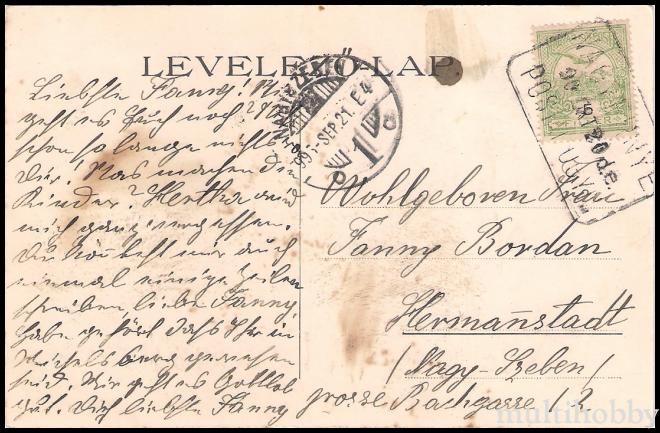 LEVELEZŐ-LAP
Liebste Fanny! Wie
geht es Euch noch?
schon so lange nichts
Dir. Was machen die
Kinder? Hertha
mich ganz vergessen.
auch
einmal einige Zeilen
schreiben, liebe Fanny,
habe gehört dass Ihr in
Michelsberg gewesen
seid. Mir geht es Gottlob
gut. Dich liebste Fanny
SEP. 21. E 4
Wohlgeboren Frau
Fanny Bordan
Hermannstadt
(Nagy-Szeben)
grosse Bachgasse 12
multihobby